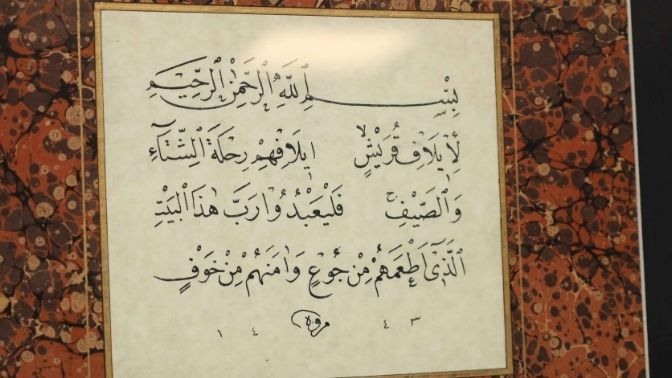 بِسْمِ اللهِ الرَّحْمٰنِ الرَّحِيْمِ
لِاِيْلَافِ قُرَيْشٍ اِيْلَافِهِمْ رِحْلَةَ الشِّتَٓاءِ
وَالصَّيْفِ فَلْيَعْبُدُوا رَبَّ هٰذَا الْبَيْتِ
اَلَّذ۪ٓي اَطْعَمَهُمْ مِنْ جُوعٍ وَاٰمَنَهُمْ مِنْ خَوْفٍ
١ ٤ مروه ٤ ٣